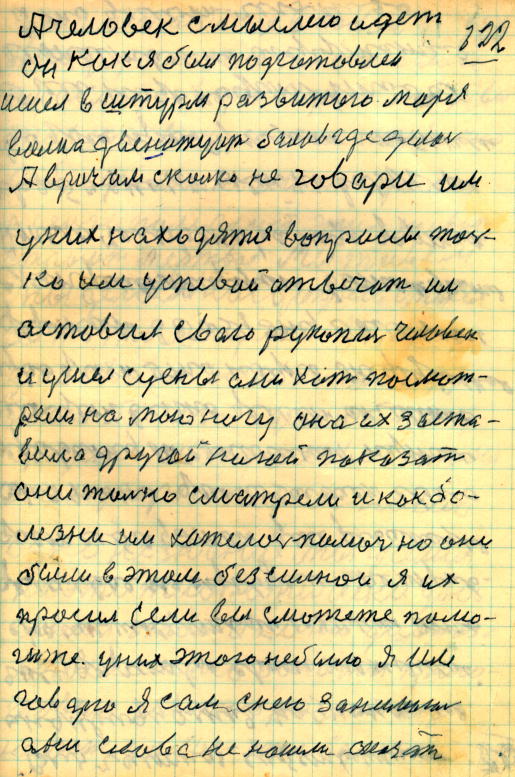 А человек смыслю идет 122
он как я был подготовлен
шел в штурм развитого моря
волна двенатцат балов где делат
А врачам сколко не говари им
уних находятся вопросы тол-
ко им успевай отвечат им
оставил свою рукопис человек
и ушел сцены они хот посмот-
рели на мою ногу она их заста-
вила другой ногой показат
они толко сматрели и как бо-
лезни им хателос помоч но они
были в этом безсилнои я их
просил если вы сможете помо-
гите. уних этого небыло я им
говарю я сам снею занимаюс
они слова не нашли сказат